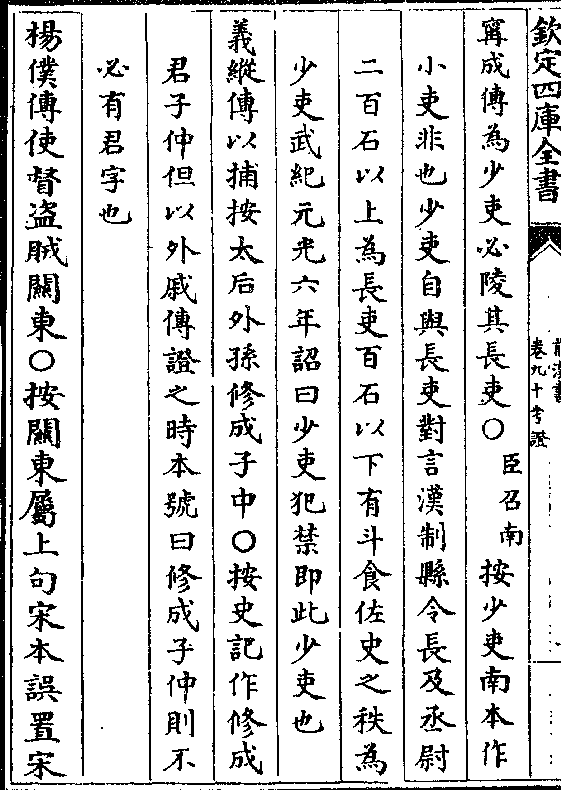 欽定四庫全書
前漢書
卷九十考證
甯成傳為少吏必陵其長吏〇臣召南按少吏南本作
小吏非也少吏自與長吏對言漢制縣令長及丞尉
二百石以上為長吏百石以下有斗食佐史之秩為
少吏武紀元光六年詔曰少吏犯禁即此少吏也
義縱傳以捕按太后外孫修成子中〇按史記作修成
君子仲但以外戚傳證之時本號曰修成子仲則不
必有君字也
楊僕傳使督盗賊關東〇按關東屬上句宋本誤置宋